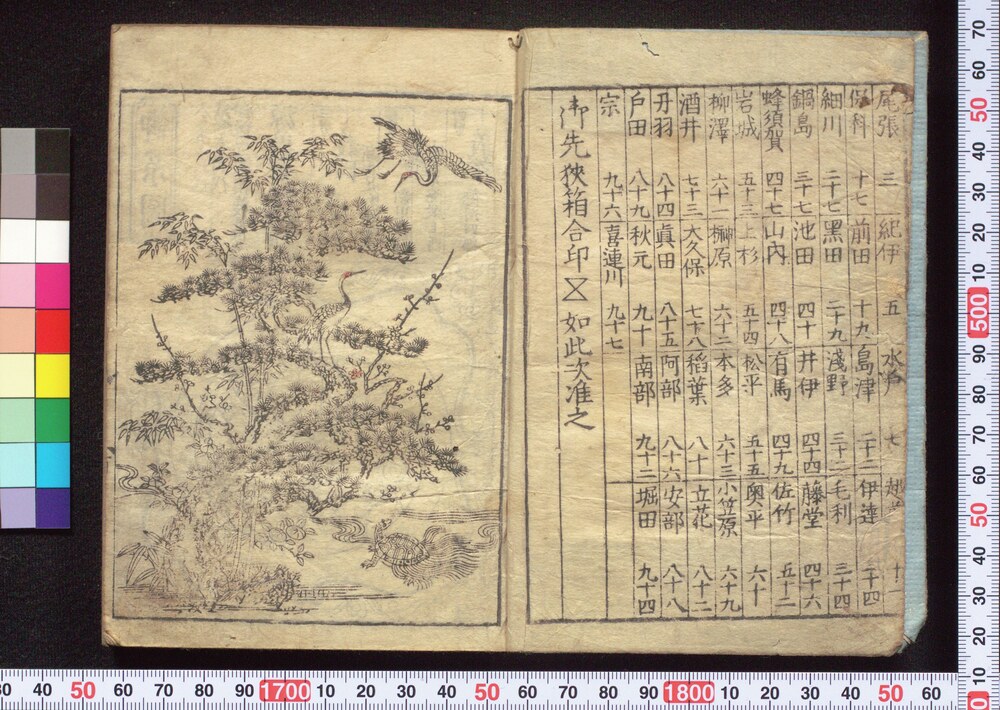 尾張 三 紀伊 五 水戸 七 十一
保科 十七 前田 十九 島津 二十二 伊達 二十四
細川 二十七 黒田 二十九 淺野 三十二 毛利 三十四
鍋島 三十七 池田 四十 井伊 四十四 藤堂 四十六
蜂須賀 四十七 山内 四十八 有馬 四十九 佐竹 五十二
岩城 五十三 上杉 五十四 松平 五十五 奥平 六十
柳澤 六十一 榊原 六十二 本多 六十三 小笠原 六十九
酒井 七十三 大久保 七十八 稲葉 八十一 立花 八十二
丹羽 八十四 眞田 八十五 阿部 八十六 安部 八十八
戸田 八十九 秋元 九十 南部 九十二 堀田 九十四
宗 九十六 喜連川 九十七
御先狹箱合印 如此次准之